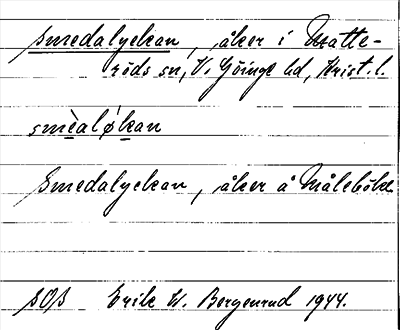 Smedalyckan, åker i Matte-
röds sn, V. Göinge hd, Krist. l.
smèaløkan
Smedalyckan, åker å Måleböke
SOS Erik W. Bergenrud 1944.